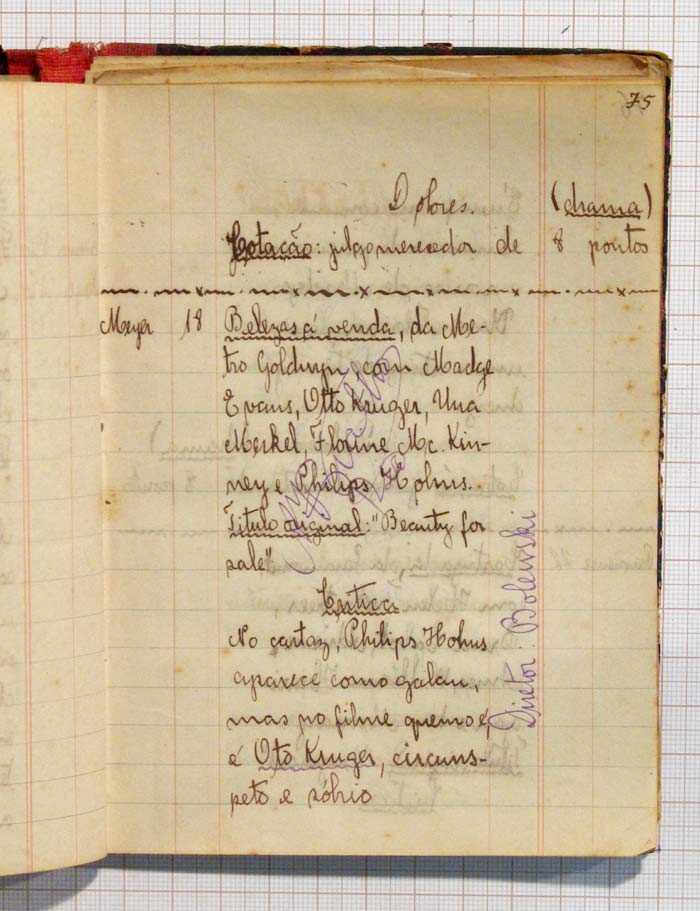 75
Dolores. (drama)
Cotação: julgo merecedor de 8 pontos
Meyer 18 Belezas á venda, da Me-
tro Goldwyn, com Madge
Evans, Otto Kruger, Una
Merkel, Florine Mc. Kin-
ney e Philips Holms.
Titulo original: "Beauty for
sale"
Critica
No cartaz, Philips Holms
aparece como galan,
mas no filme quem o é,
é Oto Kruger, circuns-
peto e sóbrio
Diretor: Bolewski